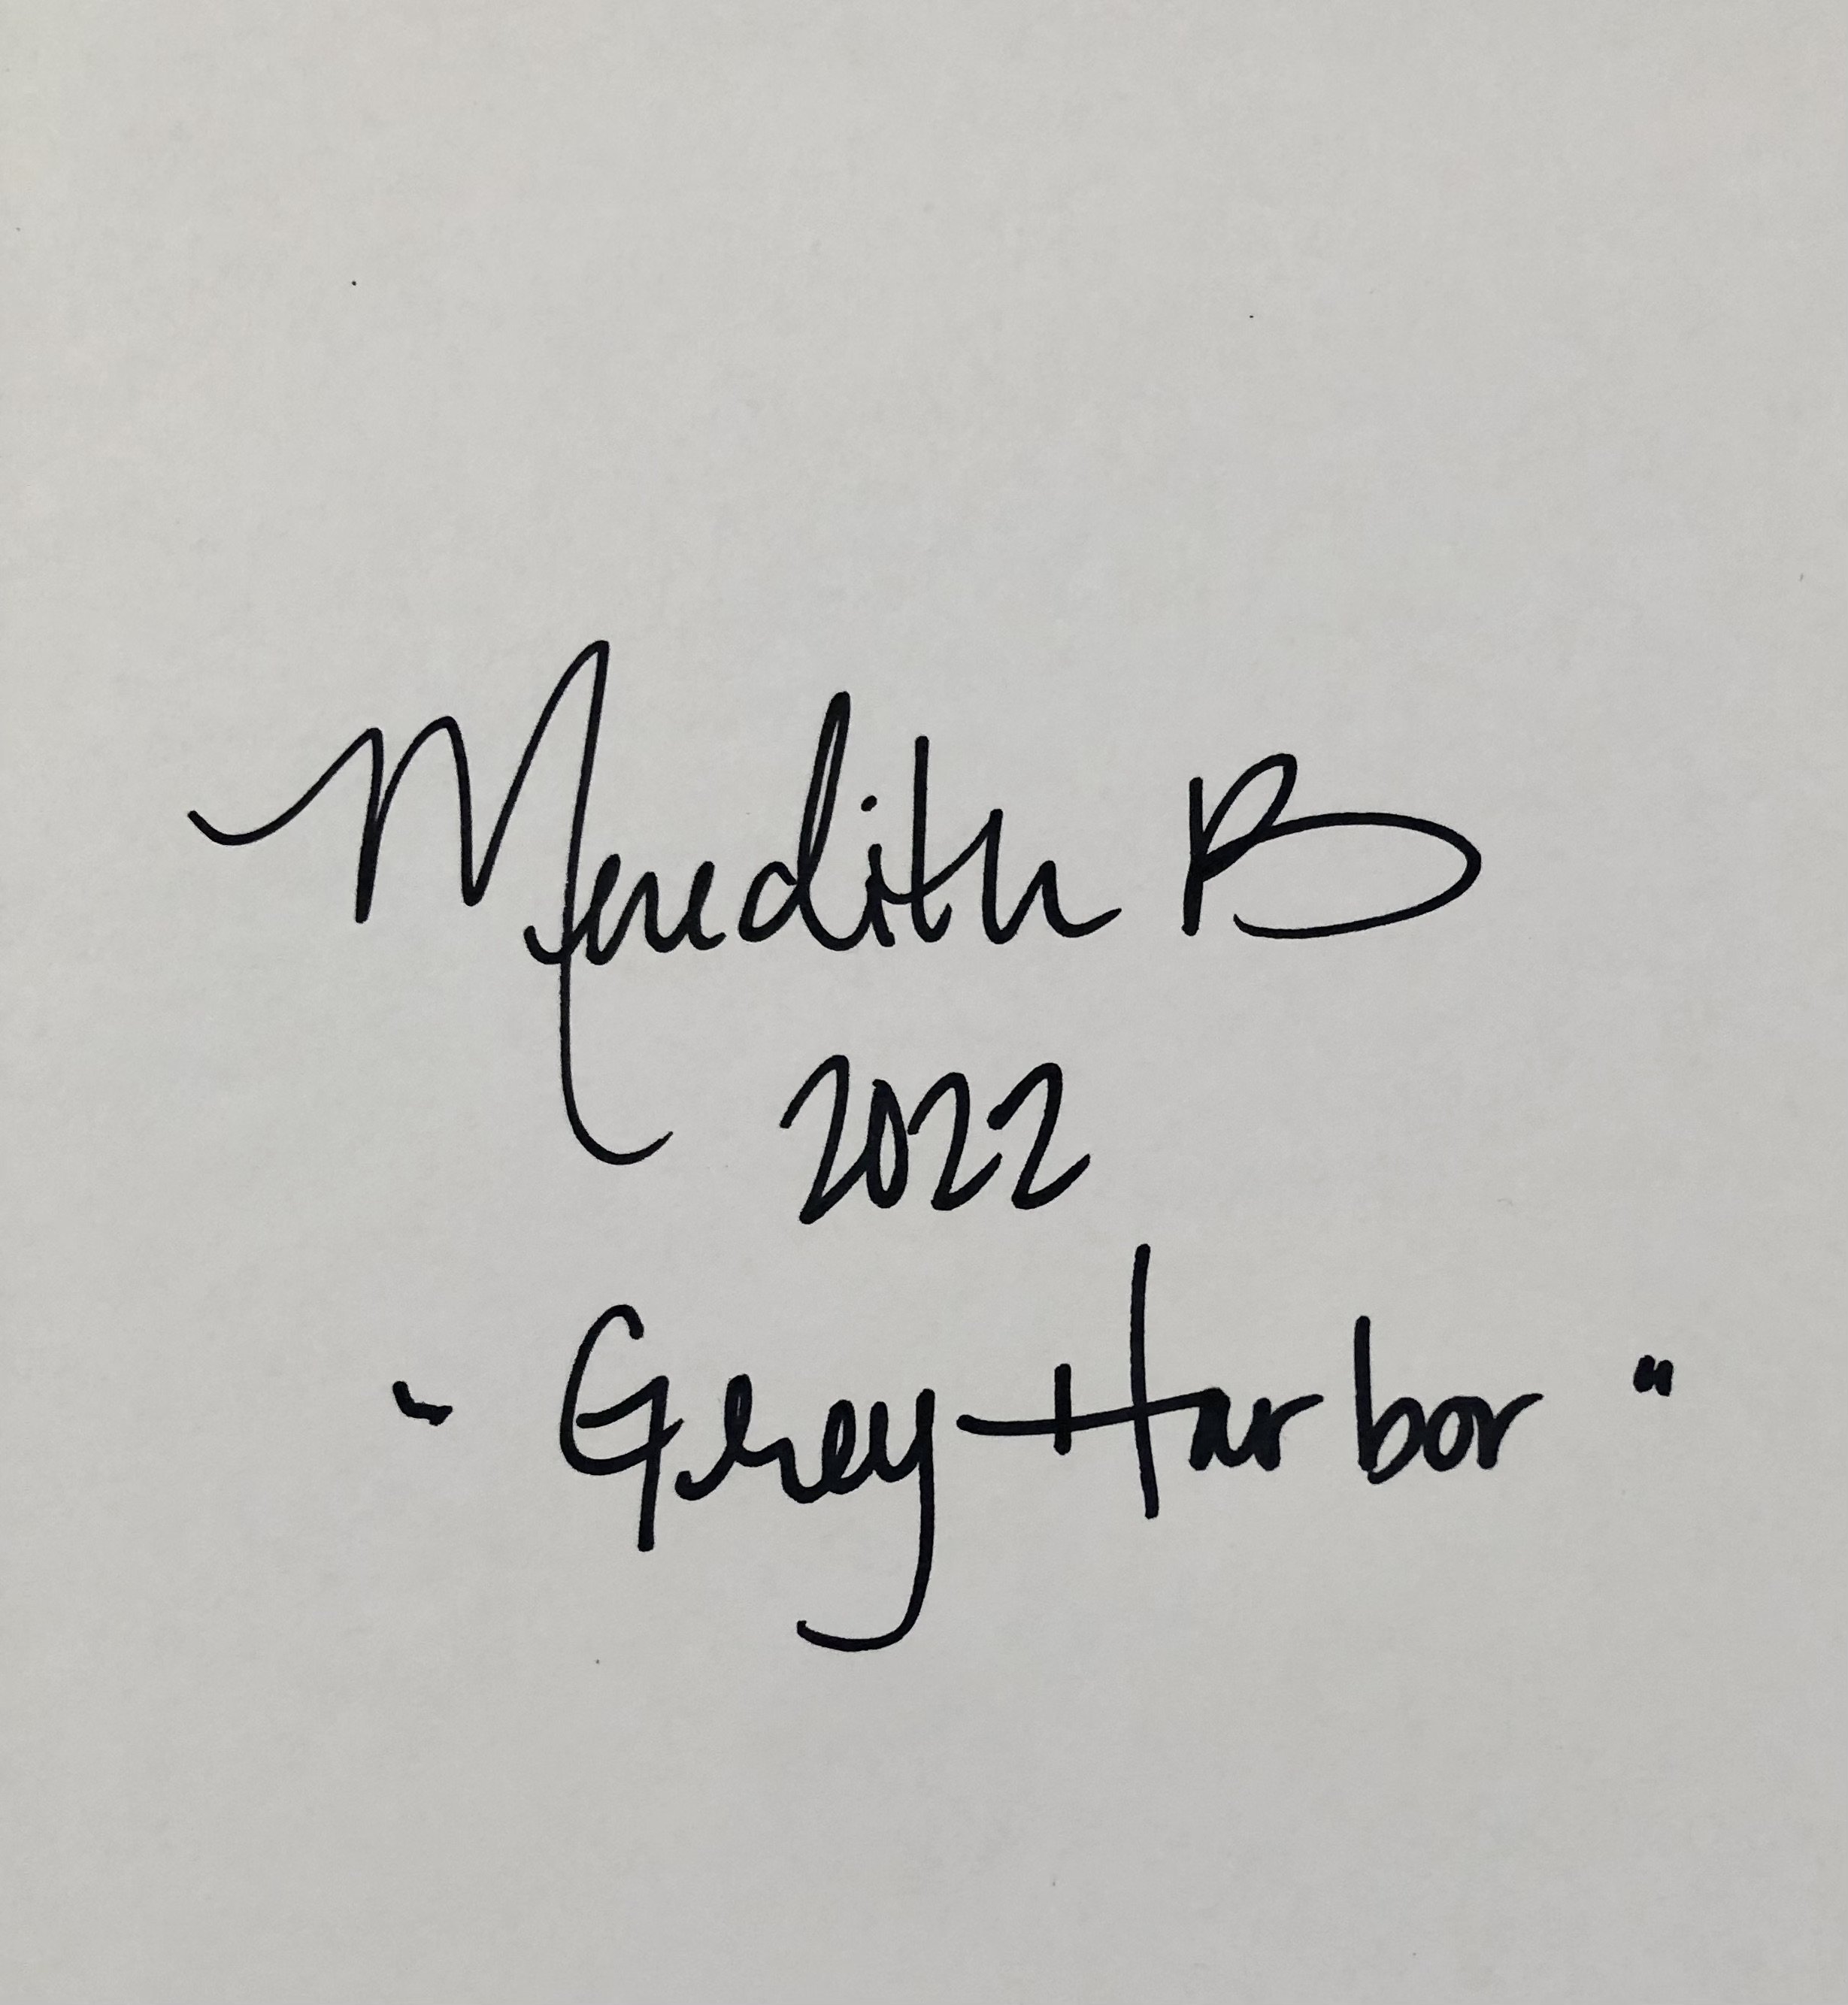 Meredith B
2022
"Grey Harbor"